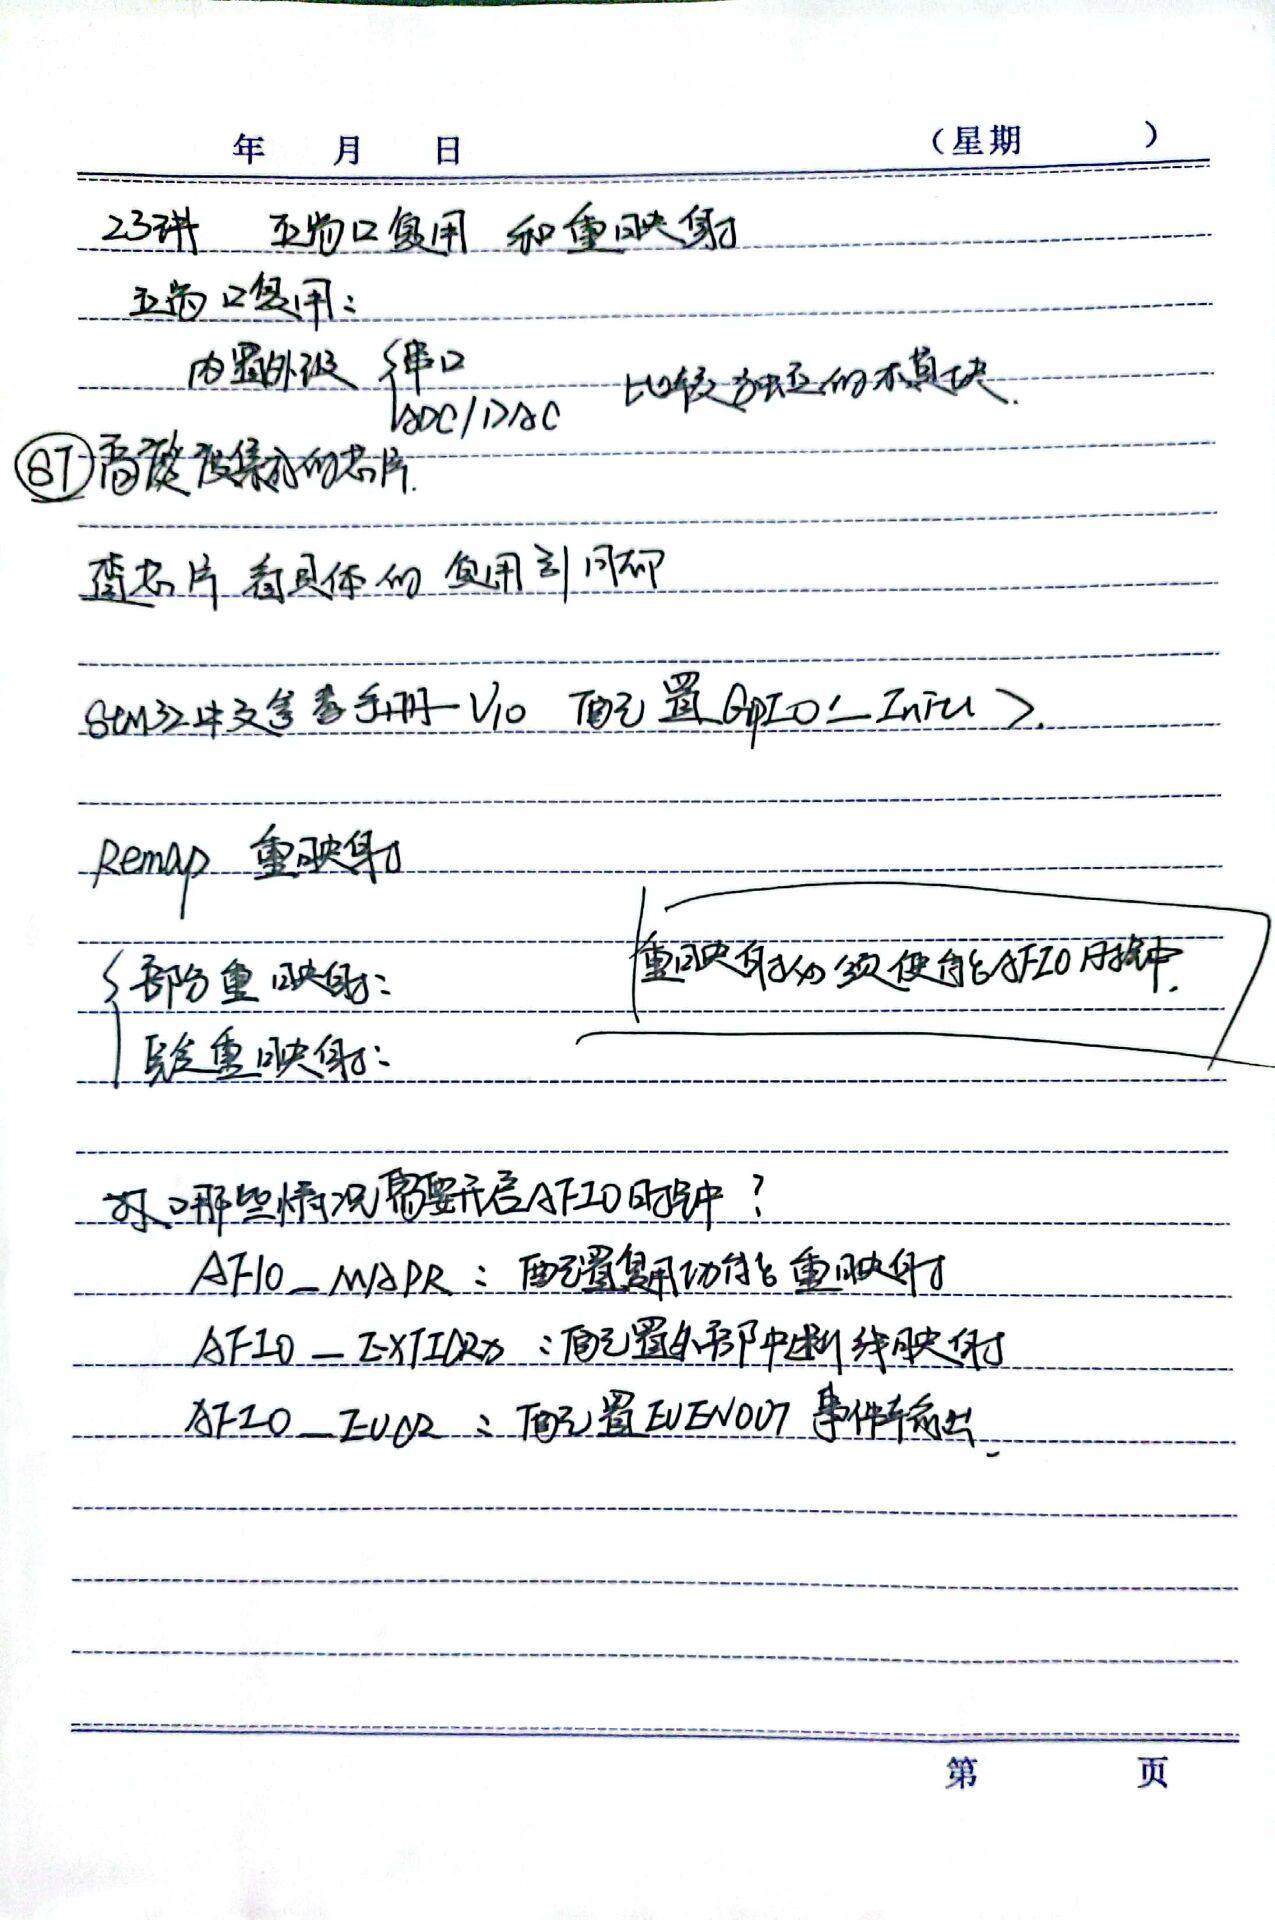 年 月 日 （星期 ）
23讲 端口复用 和重映射
端口复用：
内置外设 { 串口
ADC/DAC 比较独立的模块.
ST 看 没集成的芯片.
查芯片 看具体的 复用引脚
STM32中文参考手册-V10 配置GPIO(_Init).
Remap 重映射
{ 部分重映射：
完全重映射：
重映射必须使能AFIO时钟.
哪些情况需要开启AFIO时钟？
AFIO_MAPR：配置复用功能重映射
AFIO_EXTICRx：配置外部中断线映射
AFIO_EVCR：配置EVENOUT 事件输出.
第 页